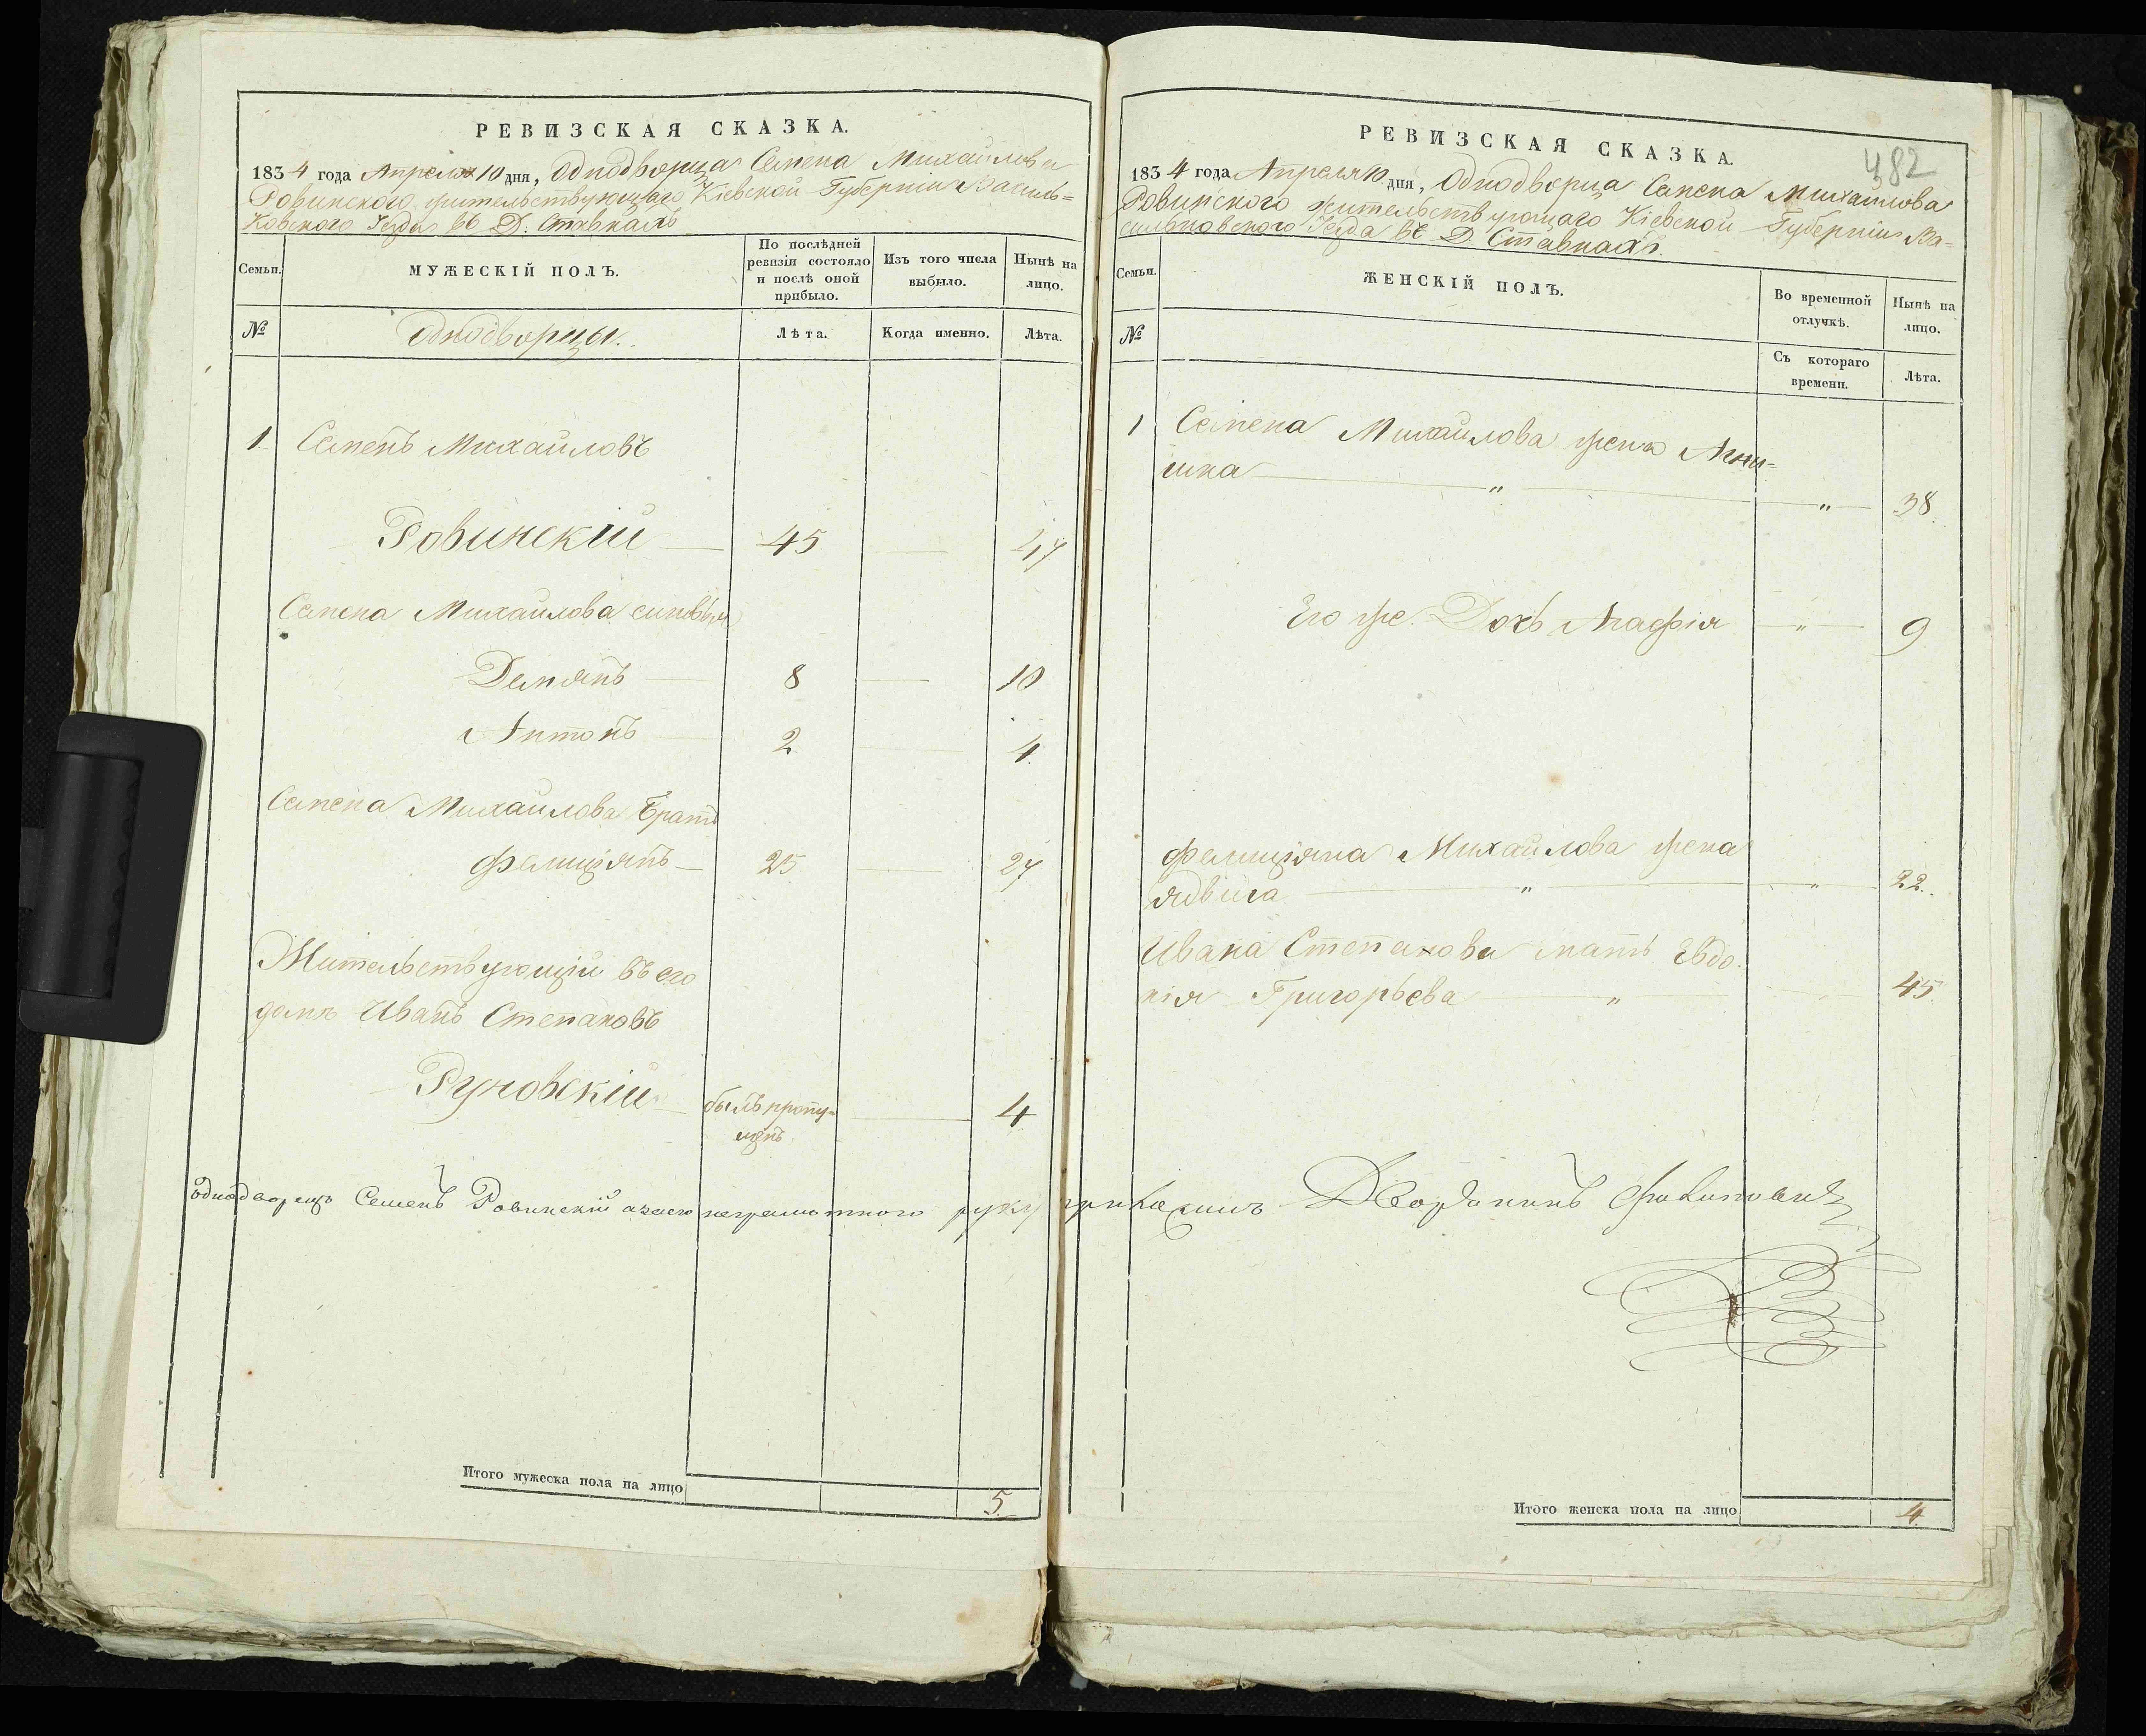 РЕВИЗСКАЯ СКАЗКА.
1834 года Апреля 10 дня, Однодворца Семена Михайлова
Ровинского жительствующаго Кіевской Губерніи Василь=
ковского Уезда въ Д. Ставкахъ
Семьи.
МУЖЕСКІЙ ПОЛЪ.
По послѣдней
ревизіи состояло
и послѣ оной
прибыло.
Изъ того числа
выбыло.
Нынѣ на
лицо.
№
Однодворцы.
Лѣта.
Когда именно.
Лѣта.
1. Семенъ Михайловъ
Ровинскій 45 47
Семена Михайлова сыновья
Демянъ 8 10
Антонъ 2 4.
Семена Михайлова братъ
Фелиціянъ 25 27
Жительствующій въ его
доме Иванъ Степановъ
Руновскій былъ пропу= 4
щенъ
Однодворецъ Семенъ Ровинскій а за его неграмотного руку приложилъ Дворянинъ
Итого мужеска пола на лицо 5.
482
РЕВИЗСКАЯ СКАЗКА.
1834 года Апреля 10 дня, Однодворца Семена Михайлова
Ровинского жительствующаго Кіевской Губерніи Ва=
сильковского Уезда въ Д. Ставкахъ.
Семьи.
ЖЕНСКІЙ ПОЛЪ.
Во временной
отлучкѣ.
Нынѣ на
лицо.
№
Съ котораго
времени.
Лѣта.
1 Семена Михайлова жена Агни=
шка " " 38.
Его же Дочь Агафія " 9
Фелиціяна Михайлова жена
Ядвига " " 22.
Ивана Степанова мать Евдо=
кія Григорьева " 45.
Итого женска пола на лицо 4.